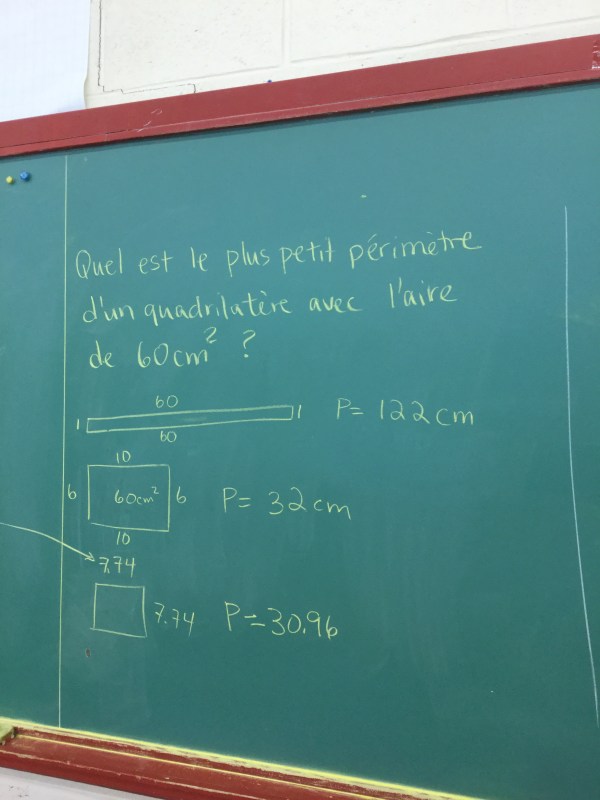 Quel est le plus petit périmètre
d'un quadrilatère avec l'aire
de 60cm² ?
60
1 1 P= 122 cm
60
10
6 60cm² 6 P= 32 cm
10
7.74
7.74 P=30.96